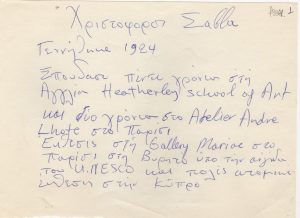 Χριστοφορος Σαββα
Γεννήθηκε 1924
Σπουδασε πεντε χρόνια στή
Αγγλια Heatherley school of Art
και δυο χρονια στο Atelier Andre
Lhote στο παρισι
Εκθεσις στή Gallery Marine στο
παρισι στή Βυρητο υπο την αιγιδα
του U.NESCO και πολλες ατομικες
έκθεση στην Κύπρο